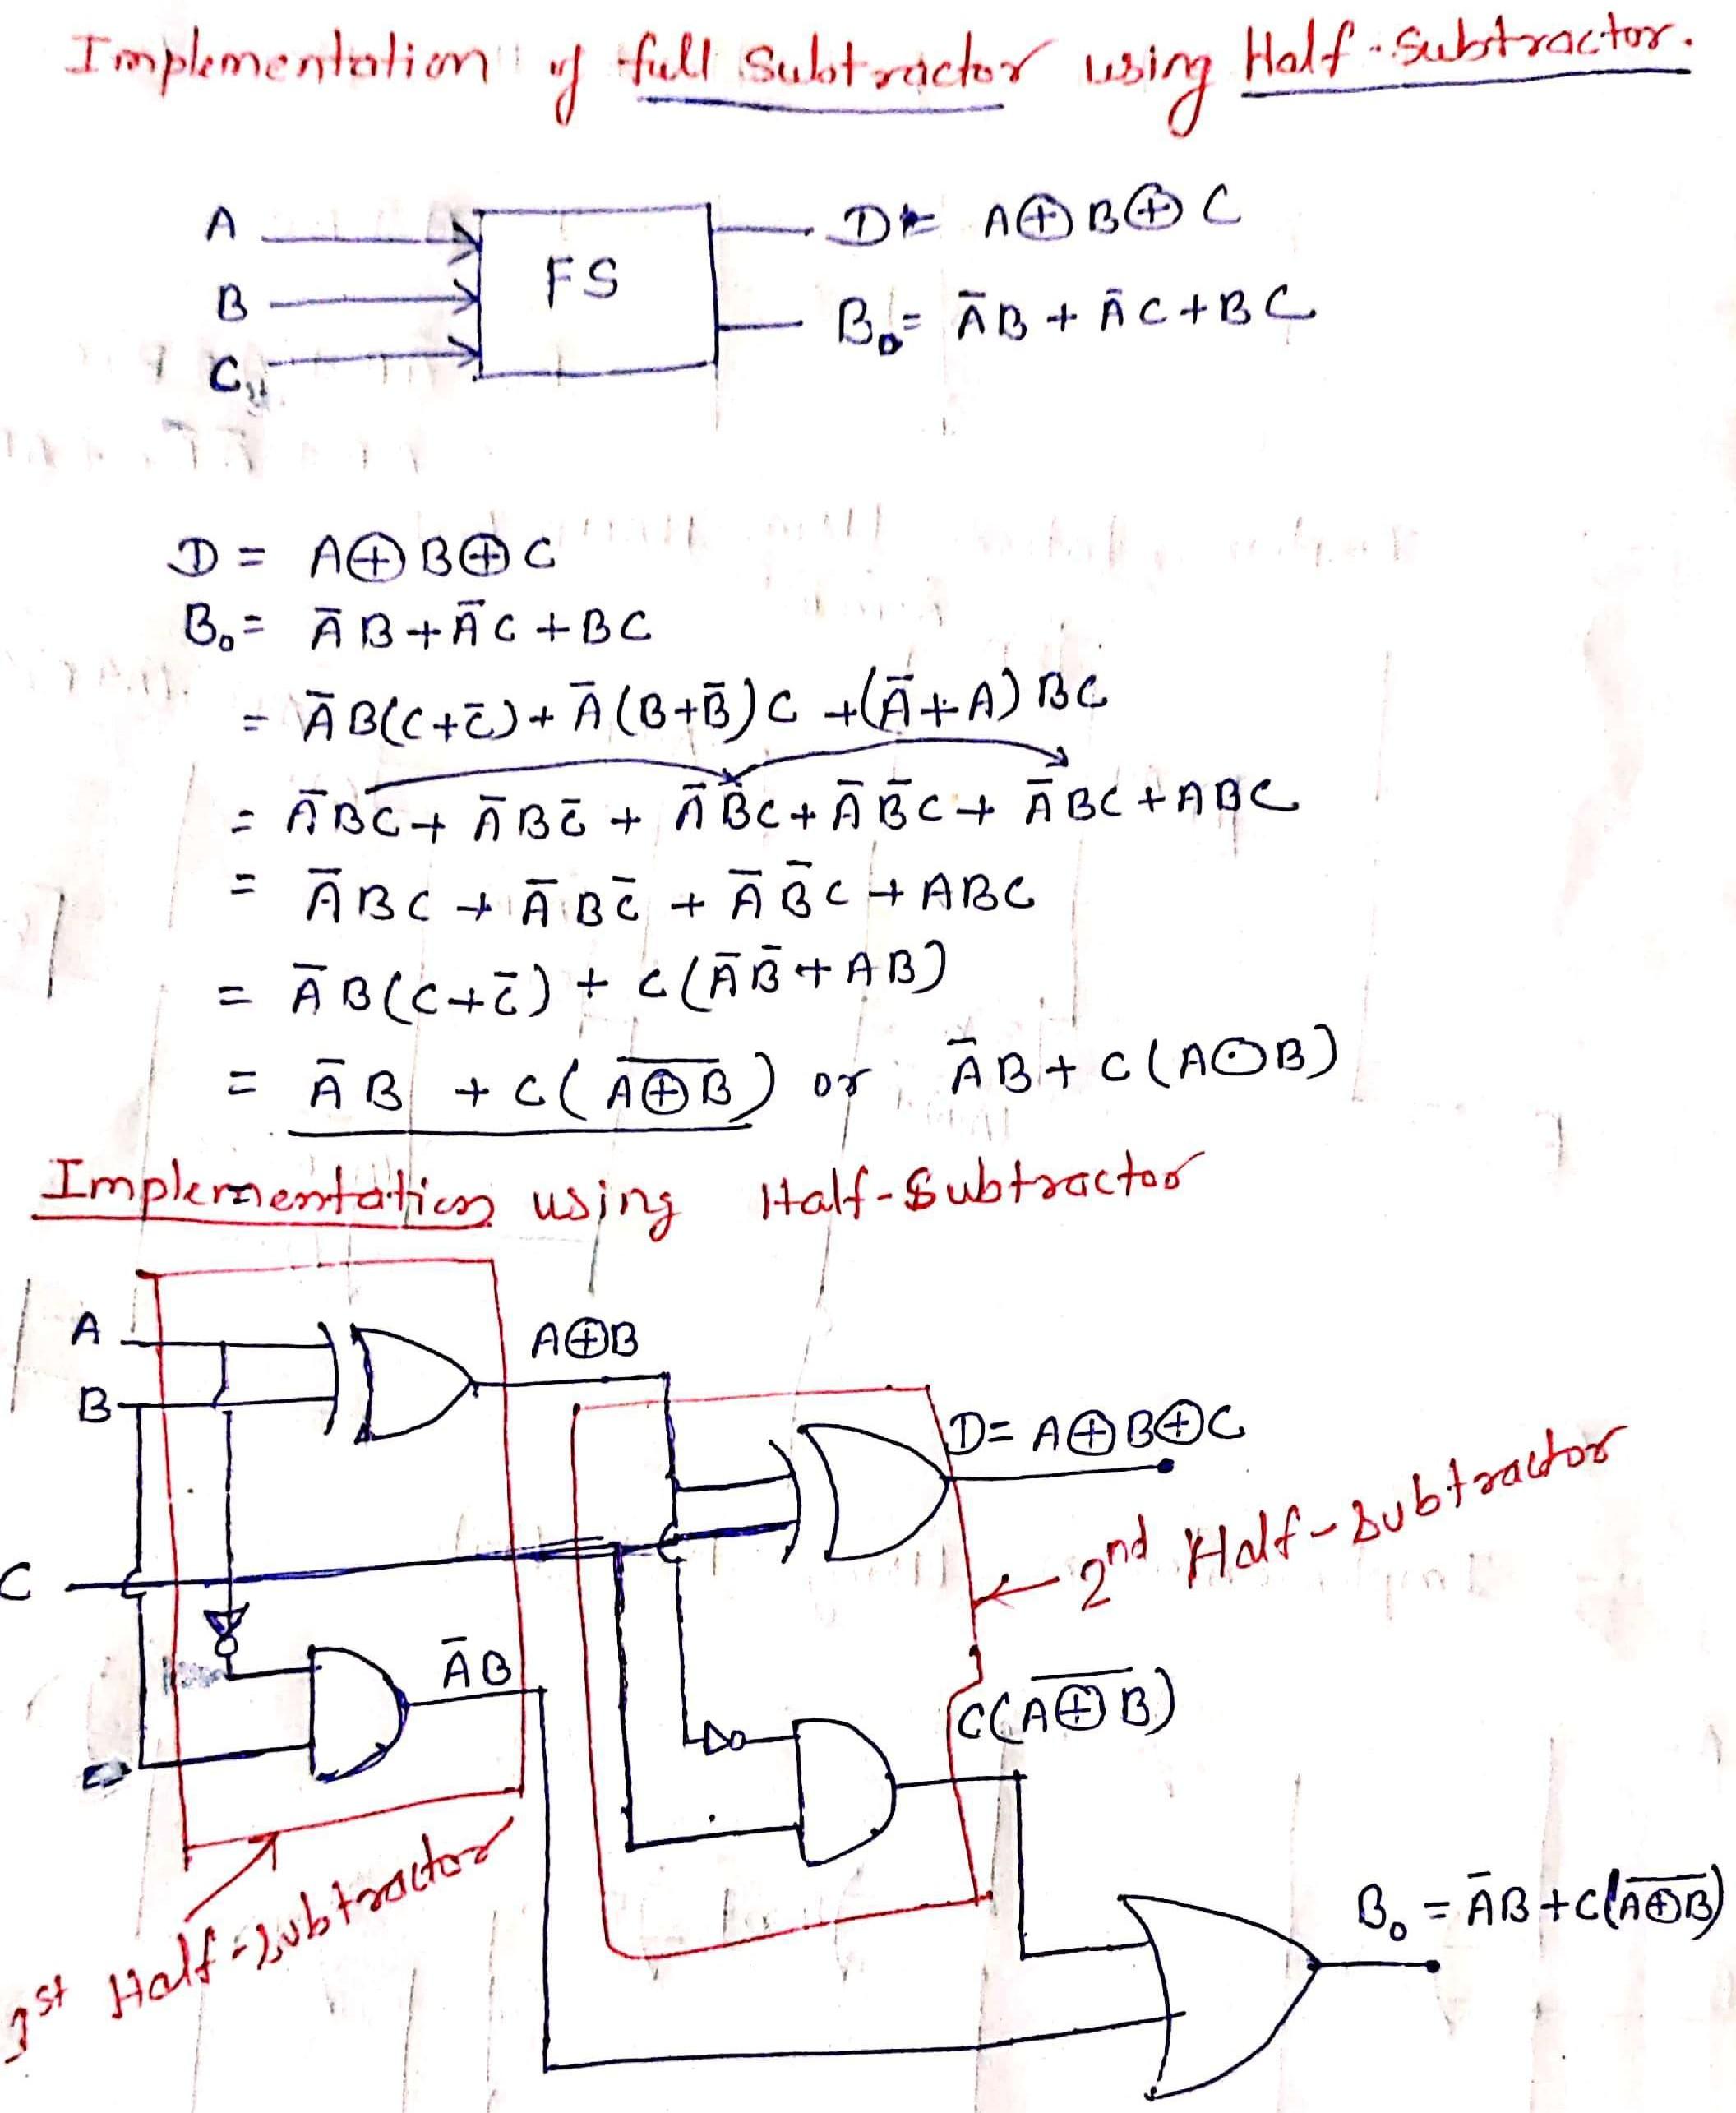 Implementation of full Subtractor using Half-Subtractor.
A
B
C
FS
D = A⊕B⊕C
B₀ = A̅B + A̅C + BC
D = A⊕B⊕C
B₀ = A̅B + A̅C + BC
= A̅B(C+C̅) + A̅(B+B̅)C + (A̅+A)BC
= A̅BC + A̅BC̅ + A̅B̅C + A̅B̅C + A̅BC + ABC
= A̅BC + A̅BC̅ + A̅B̅C + ABC
= A̅B(C+C̅) + C(A̅B̅+AB)
= A̅B + C(A̅⊕̅B̅) or A̅B + C(A⊙B)
Implementation using Half-Subtractor
A
A⊕B
B
D = A⊕B⊕C
C
2nd Half-Subtractor
A̅B
C(A̅⊕̅B̅)
1st Half-Subtractor
B₀ = A̅B + C(A̅⊕̅B̅)